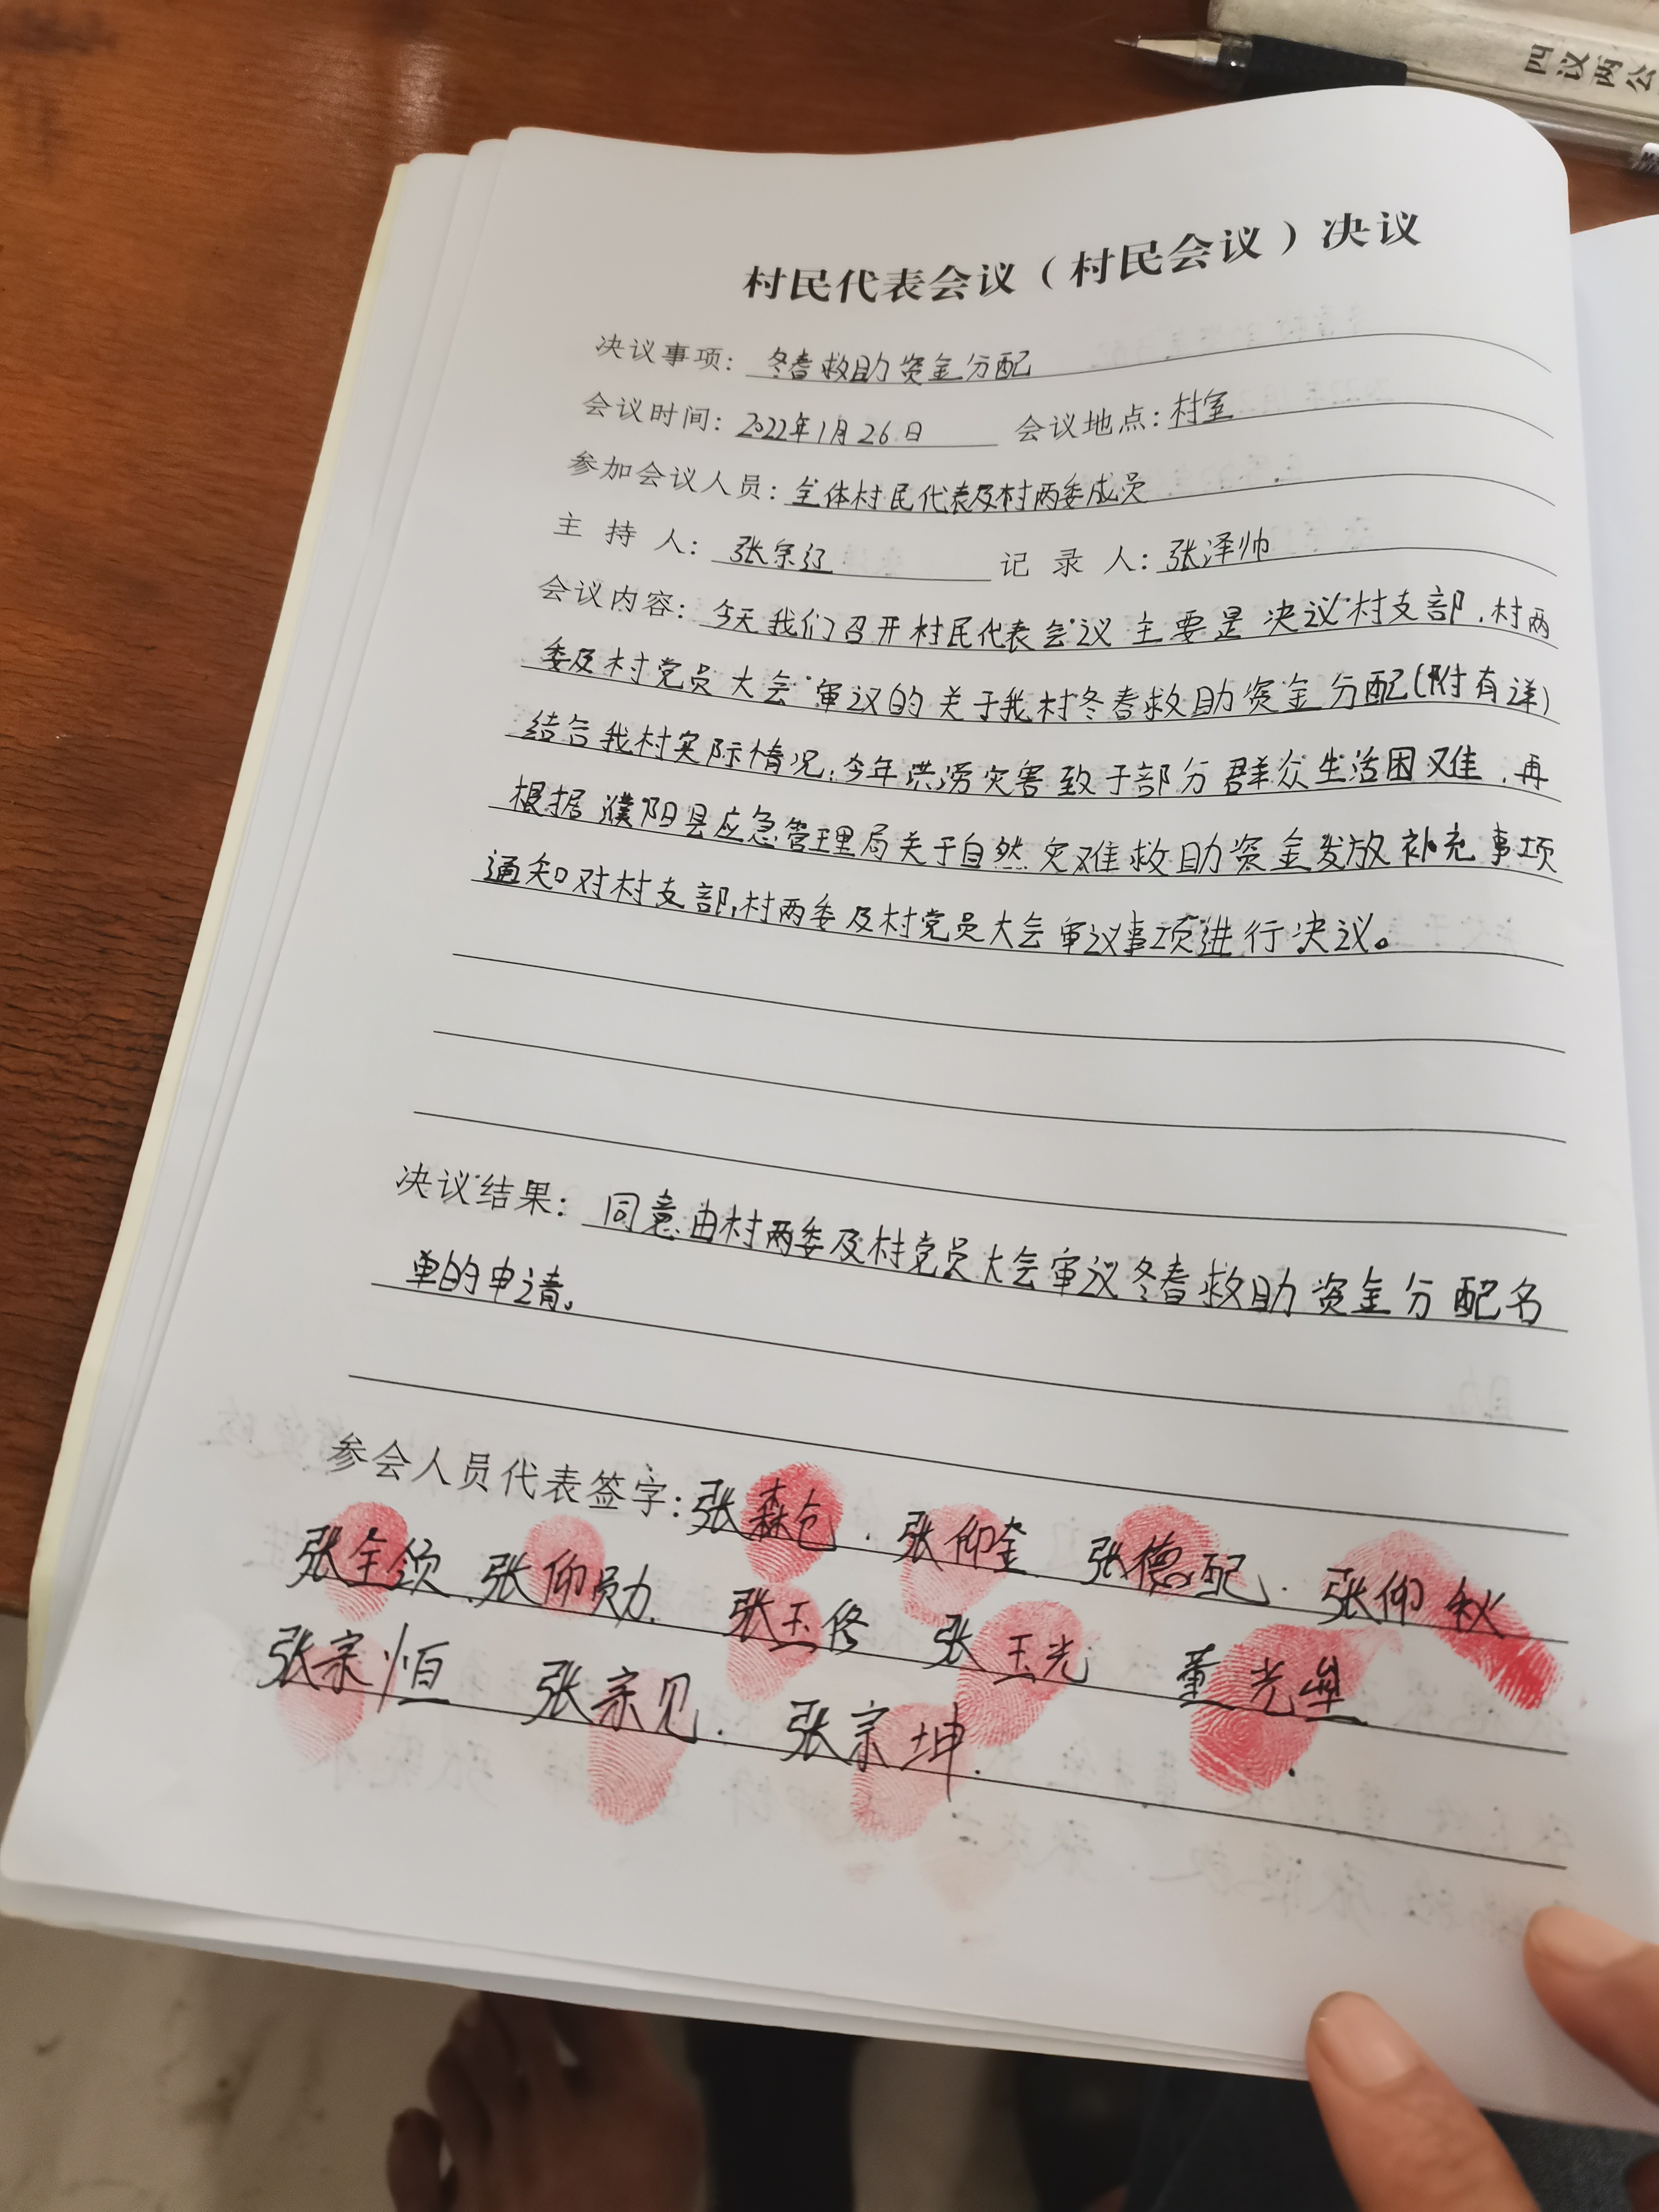 四议两公
村民代表会议（村民会议）决议
决议事项：冬春救助资金分配
会议时间：2022年1月26日 会议地点：村室
参加会议人员：全体村民代表及村两委成员
主持人：张宗辽 记录人：张泽帅
会议内容：今天我们召开村民代表会议主要是决议村支部，村两
委及村党员大会审议的关于我村冬春救助资金分配(附有详)
结合我村实际情况，今年洪涝灾害致于部分群众生活困难，再
根据濮阳县应急管理局关于自然灾难救助资金发放补充事项
通知对村支部，村两委及村党员大会审议事项进行决议。
决议结果：同意由村两委及村党员大会审议冬春救助资金分配名
单的申请。
参会人员代表签字：张森仓．张仰奎 张德配．张仰秋
张全领．张仰勋．张玉修 张玉光 董光
张宗恒 张宗见．张宗坤．